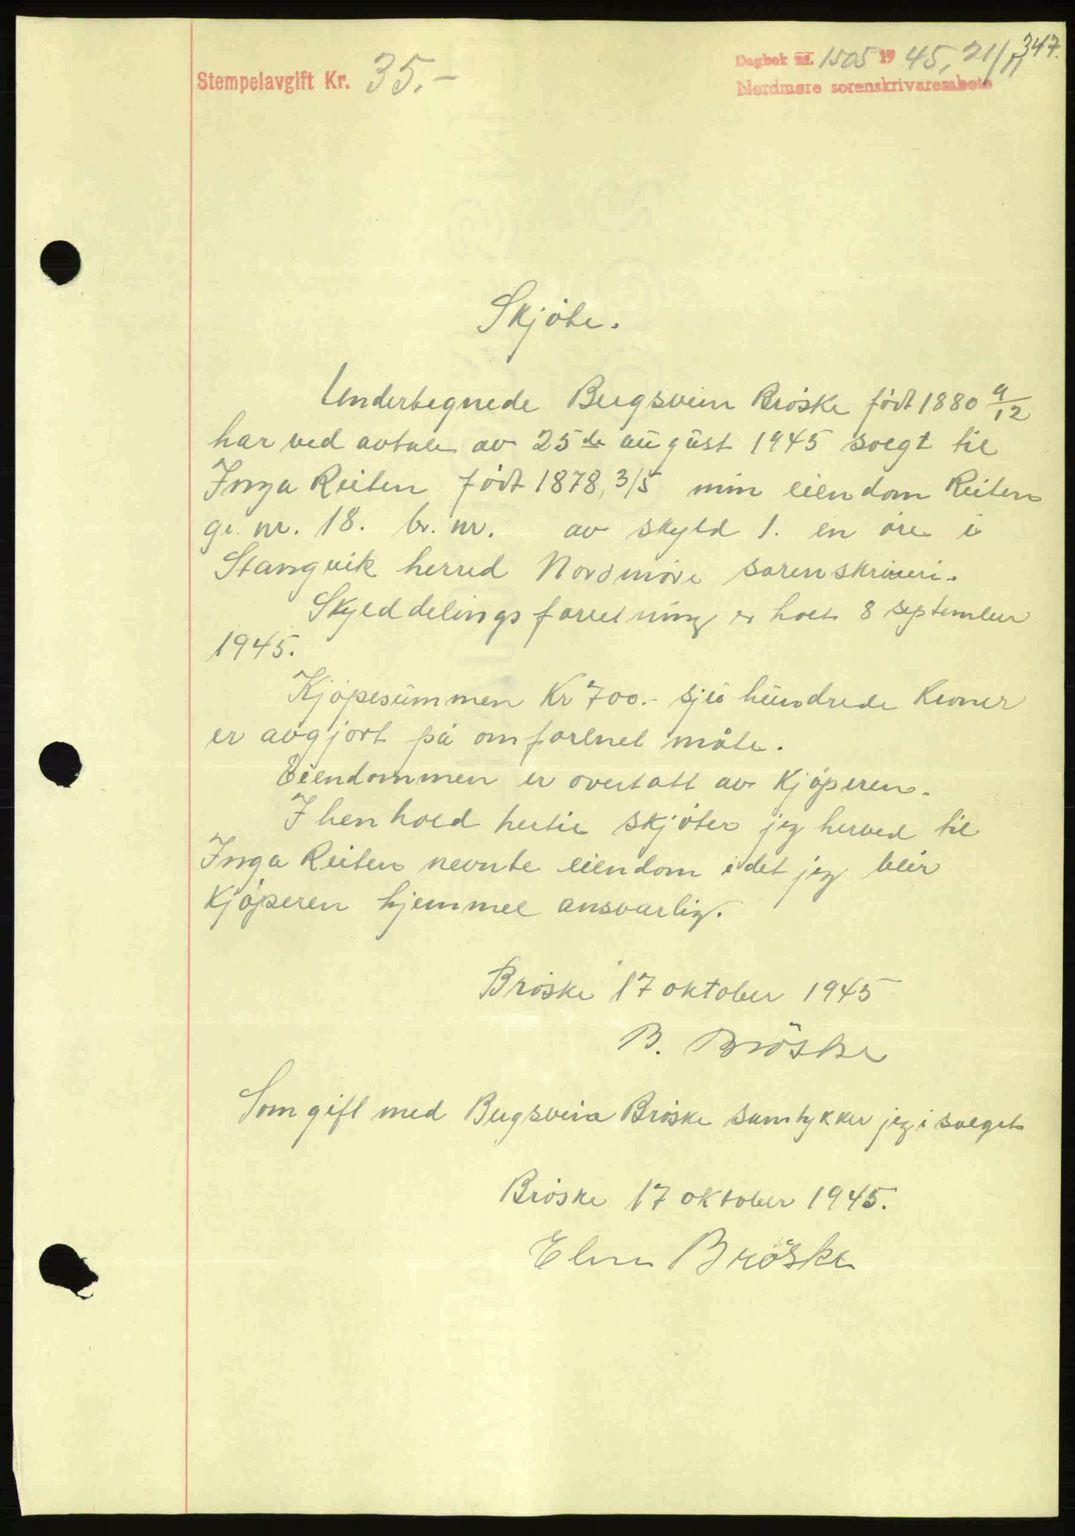 347.
Stempelavgift Kr. 35.-
Dagbok nr. 1505 19 45, 21/11
Nordmøre sorenskriverembete
Skjöte.
Undertegnede Bugsvein Bröske födt 1880 9/12
har ved avtale av 25de august 1945 solgt til
Inga Reiten födt 1878, 3/5 min eiendom Reiten
gr. nr. 18. br. nr. av skyld 1. en öre i
Stangvik herred Nordmöre sorenskriveri.
Skylddelingsforretning er holt 8 september
1945.
Kjöpesummen Kr 700.- sju hundrede kroner
er avgjort på omforenet måte.
Eiendommen er overtatt av Kjöperen.
I henhold hertil skjöter jeg herved til
Inga Reiten nevnte eiendom idet jeg blir
Kjöperen hjemmel ansvarlig.
Bröske 17 oktober 1945
B. Bröske
Som gift med Bugsvein Bröske samtykker jeg i salget
Bröske 17 oktober 1945.
Bröske